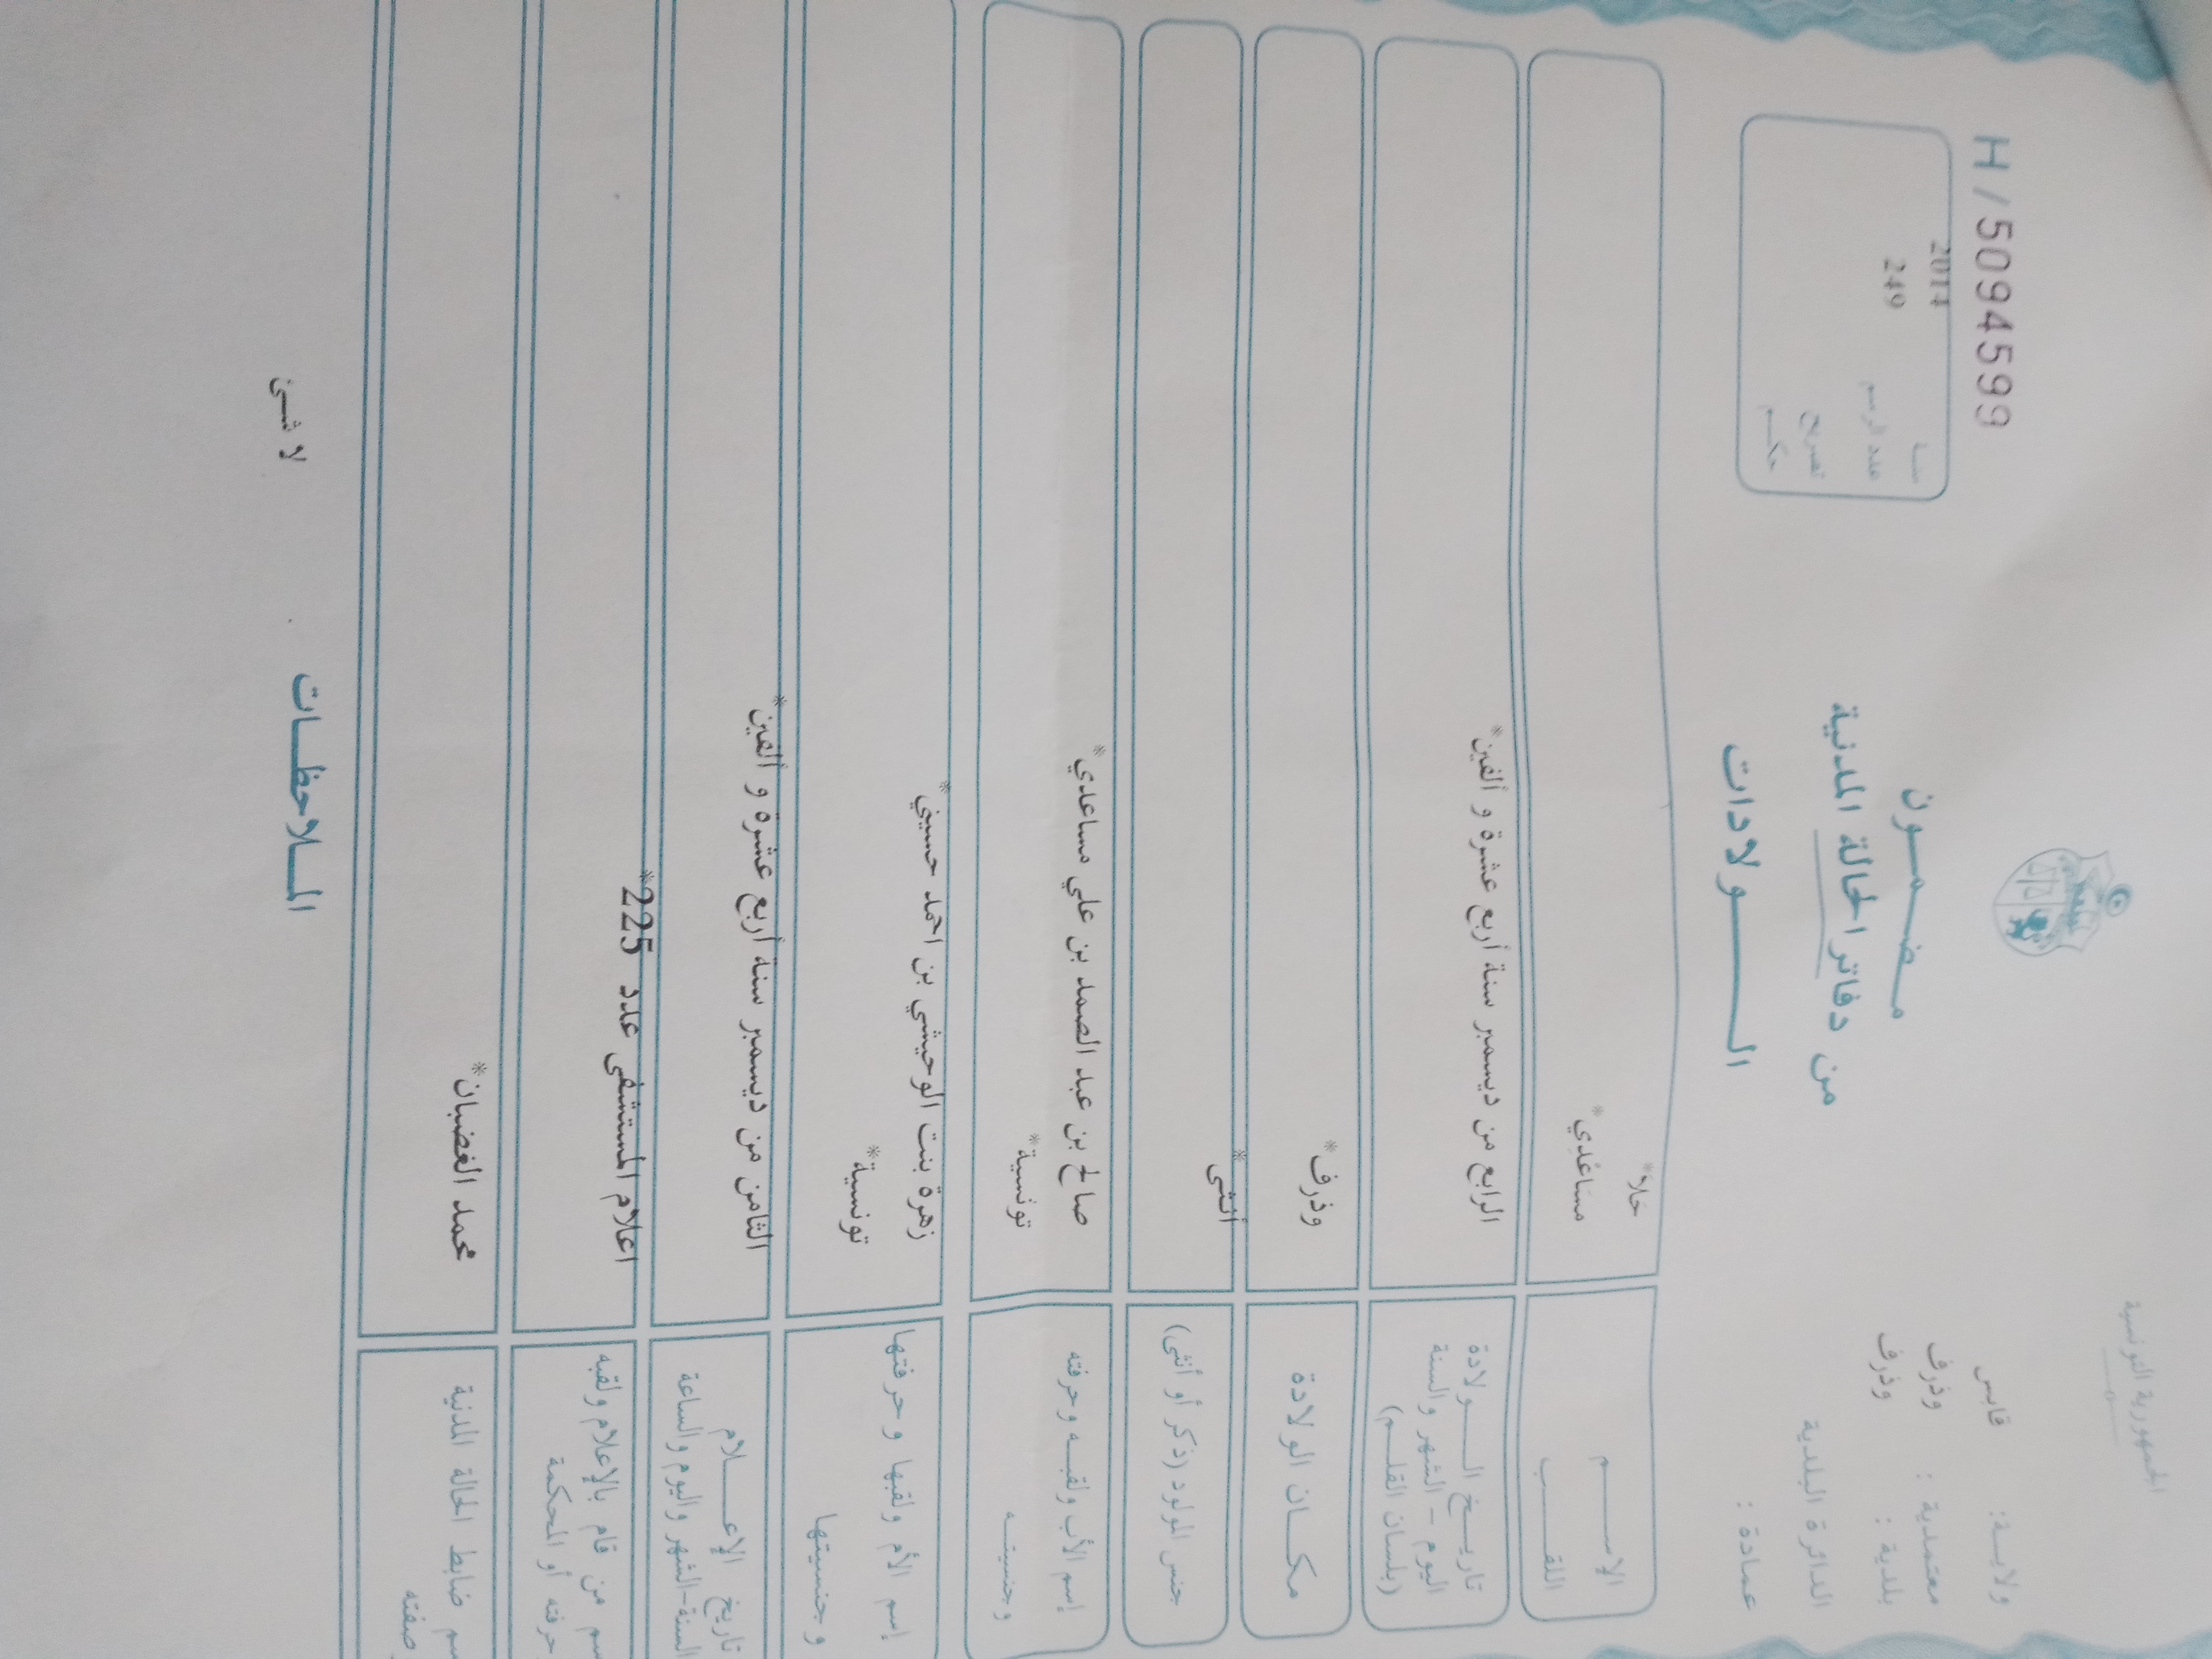 الجمهورية التونسية
ولايــة: قابس
معتمدية : وذرف
بلدية : وذرف
الدائرة البلدية
عمادة :
H/5094599
سنــة 2014
عدد الرسم 249
تصريح
حكــم
مـــضـــمـــون
من دفاتر الحالة المدنية
الــــــولادات
الإســــم حلا*
اللقــــب مساعدي*
تاريــخ الــــولادة
اليوم – الشهر والسنة
(بلسان القلــم)
الرابع من ديسمبر سنة أربع عشرة و ألفين*
مكــان الولادة وذرف*
جنس المولود (ذكر أو أنثى) أنثى*
إسم الأب ولقبــه وحرفته صالح بن عبد الصمد بن علي مساعدي*
وجنسيتــه تونسية*
إسم الأم ولقبها وحرفتها زهرة بنت الوحيشي بن احمد حسيني*
وجنسيتها تونسية*
تاريخ الإعـــــلام
السنة-الشهر واليوم والساعة
الثامن من ديسمبر سنة أربع عشرة و ألفين*
سم من قام بالإعلام ولقبه
حرفته أو المحكمة
اعلام المستشفى عدد 225*
سم ضابط الحالة المدنية محمد الغضبان*
صفته
المــلاحظــات
لا شــئ